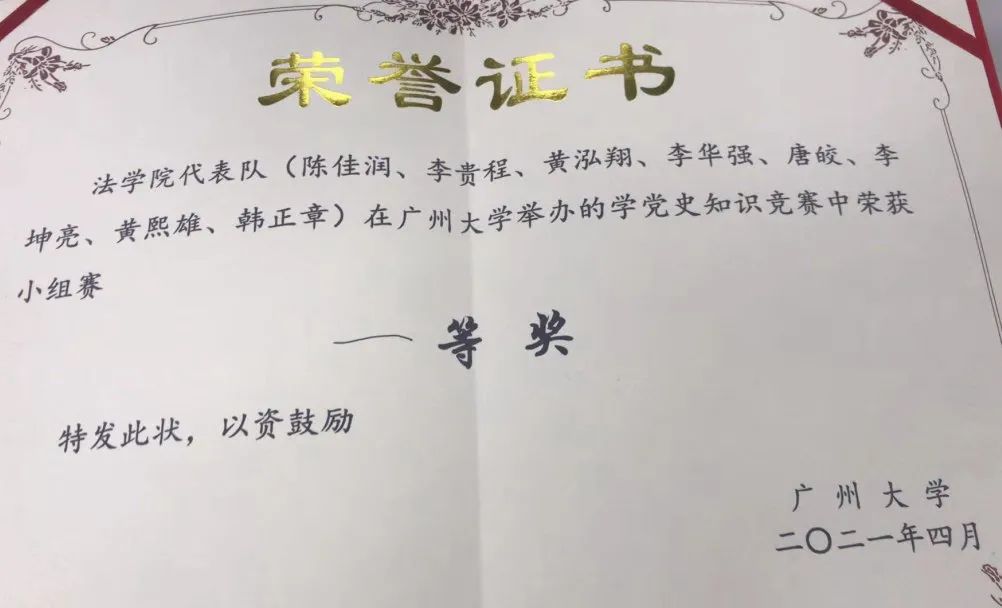 荣誉证书
法学院代表队（陈佳润、李贵程、黄泓翔、李华强、唐皎、李
坤亮、黄熙雄、韩正章）在广州大学举办的学党史知识竞赛中荣获
小组赛
一等奖
特发此状，以资鼓励
广州大学
二〇二一年四月